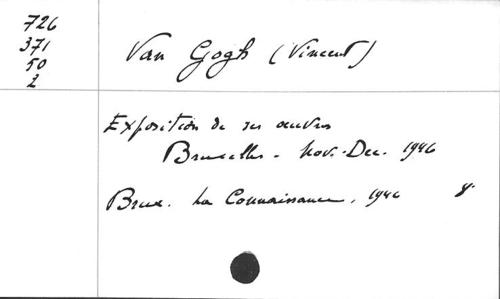 726
371
50
2
Van Gogh (Vincent)
Exposition de ses œuvres
Bruxelles - Nov.-Dec. 1946
Brux. La Connaissance, 1946 8°